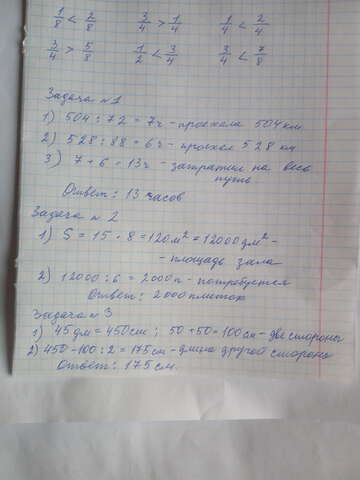 1/8 < 2/8   3/4 > 1/4   1/4 < 2/4
3/4 > 5/8   1/2 < 3/4   3/4 < 7/8
Задача №1
1) 504 : 72 = 7ч - проехала 504 км.
2) 528 : 88 = 6ч - проехал 528 км
3) 7 + 6 = 13ч - затратил на весь
путь
Ответ: 13 часов
Задача № 2
1) S = 15 · 8 = 120 м² = 12000 дм² -
- площадь зала
2) 12000 : 6 = 2000 п - потребуется
Ответ: 2000 плиток
Задача № 3
1) 45 дм = 450 см ; 50 + 50 = 100 см - две стороны
2) 450 - 100 : 2 = 175 см - длина другой стороны
Ответ: 175 см.